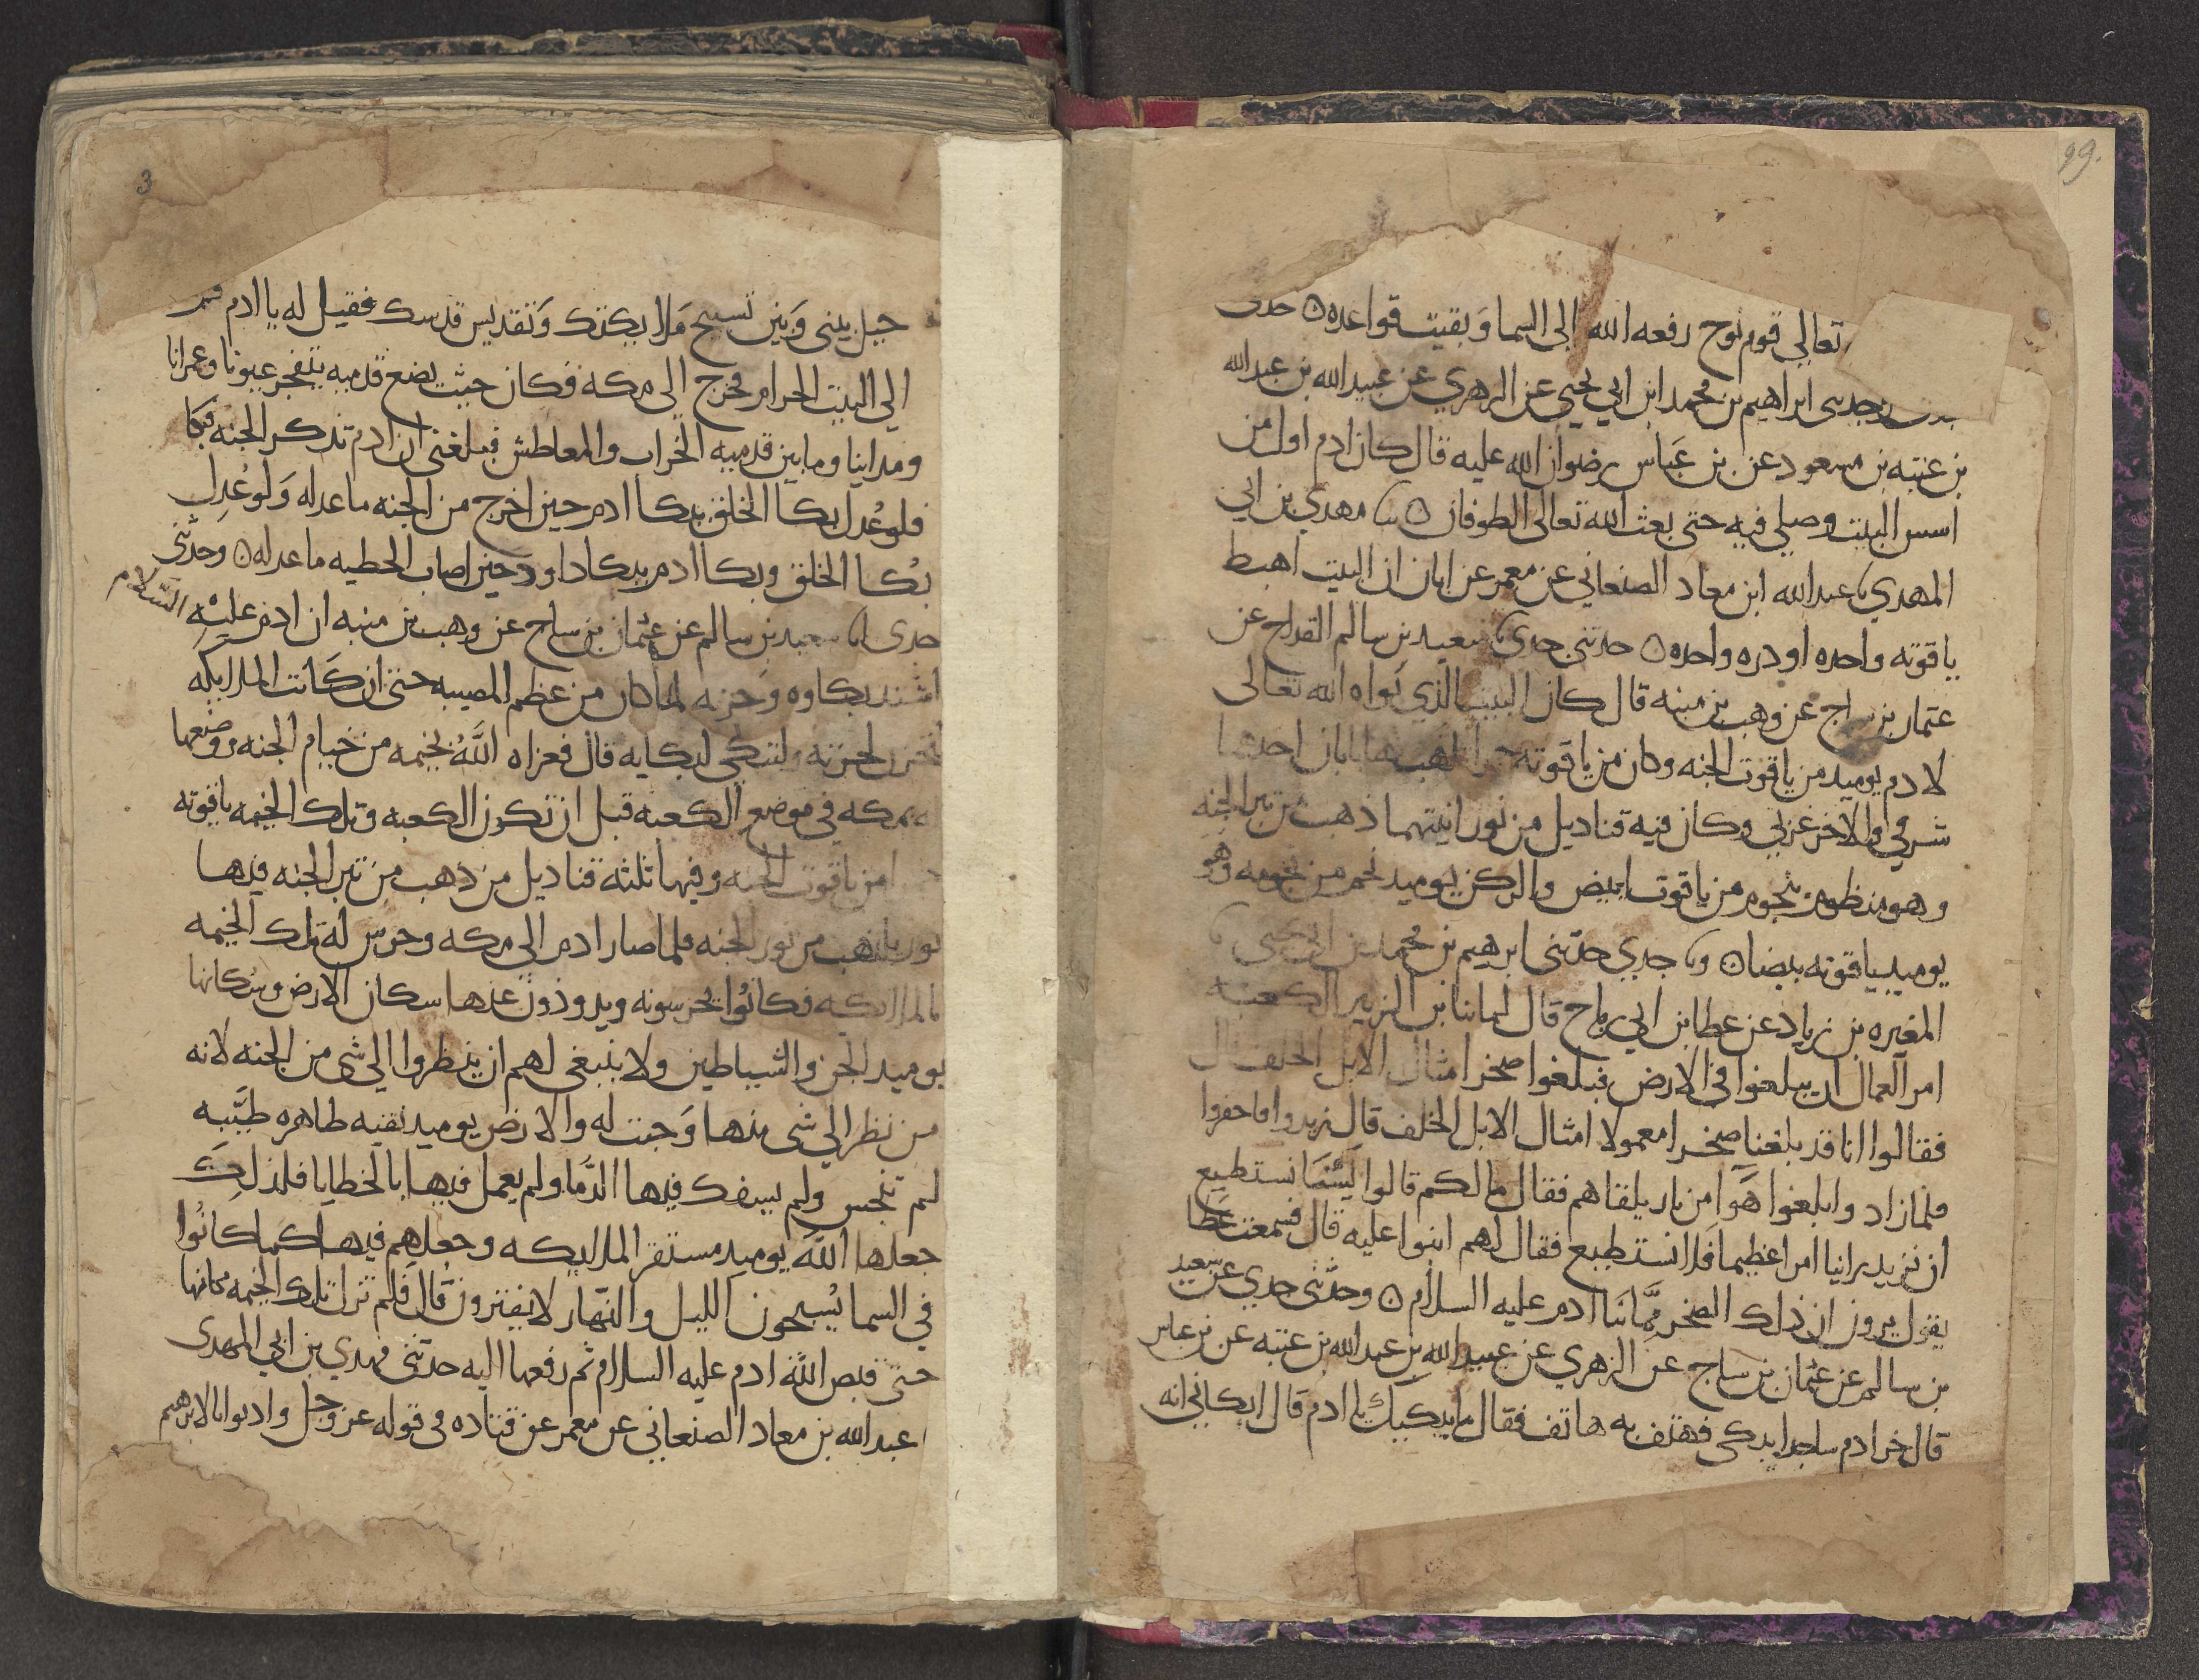 99.
تعالى قوم نوح رفعه الله الى السما وبقيت قواعده ۝
وحدثنى ابراهيم بن محمد ابن ابي يحيى عن الزهري عن عبيد الله بن عبد الله
بن عتبه بن مسعود عن بن عباس رضوان الله عليه قال كان ادم اول من
اسس البيت وصلي فيه حتى بعث الله تعالى الطوفان ۝ مهدي بن ابي
المهدي عبد الله ابن معاد الصنعاني عن معمر عن ابان ان البيت اهبط
ياقوته واحده او دره واحده ۝ حدثني جدي سعيد بن سالم القداح عن
عثمان بن ساج عن وهب بن منبه قال كان البيت الذي بواه الله تعالى
لادم يوميد من ياقوت الجنه وكان من ياقوته لها بابان احدهما
شرقي والاخر غربي وكان فيه قناديل من نور انيتهما ذهب من تبر الجنه
وهو منظوم بنجوم من ياقوت ابيض والركن يوميد نجم من نجومه وهو
يوميد ياقوته بيضا ۝ جدي حدثني ابرهيم بن محمد بن ابي يحيى
المغيره بن زياد عن عطا بن ابي رباح قال لما بنا بن الزبير الكعبه
امر العمال ان يبلغوا في الارض فبلغوا صخرا امثال الابل الخلف قال
فقالوا انا قد بلغنا صخرا معمولا امثال الابل الخلف قال زيدوا فاحفروا
فلما زادوا بلغوا هوا من نار يلقاهم فقال ما لكم قالوا لسنا نستطيع
ان نزيد راينا امرا عظيما فلا نستطيع فقال لهم ابنوا عليه قال فسمعت عطا
يقول يرون ان ذلك الصخر مما بنا ادم عليه السلام ۝ وحدثني جدي عن سعيد
بن سالم عن عثمان بن ساج عن الزهري عن عبيد الله بن عبد الله بن عتبه عن بن عباس
قال خر ادم ساجدا يبكي فهتف به هاتف فقال ما يبكيك يا ادم قال ابكاني انه
3
حيل بيني وبين تسبيح ملايكتك وتقديس قدسك فقيل له يا ادم قم
الي البيت الحرام فخرج الى مكه فكان حيث يضع قدميه يتفجر عيونا وعمرانا
ومداينا وما بين قدميه الخراب والمعاطش فبلغني ان ادم تذكر الجنه فبكا
فلو عدل بكا الخلق ببكا ادم حين اخرج من الجنه ما عدله ولو عدل
بكا الخلق وبكا ادم ببكا داود حين اصاب الخطيه ما عدله ۝ وحدثني
جدى سعيد بن سالم عن عثمان بن ساج عن وهب بن منبه ان ادم عليه السلام
اشتد بكاوه وحزنه لما كان من عظم المصيبه حتى ان كانت الملايكه
لتحزن لحزنه ولتبكي لبكايه قال فعزاه الله بخيمه من خيام الجنه ووضعها
له بمكه في موضع الكعبه قبل ان تكون الكعبه وتلك الخيمه ياقوته
من ياقوت الجنه وفيها ثلثه قناديل من ذهب من تبر الجنه فيها
نور يلتهب من نور الجنه فلما صار ادم الي مكه وحرس له تلك الخيمه
بالملايكه فكانوا يحرسونه ويذودون عنها سكان الارض وسكانها
يوميد الجن والشياطين ولا ينبغي لهم ان ينظروا الي شى من الجنه لانه
من نظر الي شى منها وجبت له والارض يوميد نقيه طاهره طيبه
لم تنجس ولم يسفك فيها الدما ولم يعمل فيها بالخطايا فلذلك
جعلها الله يوميد مستقر الملايكه وجعلهم فيها كما كانوا
في السما يسبحون الليل والنهار لا يفترون قال فلم تزل تلك الخيمه مكانها
حتى قبض الله ادم عليه السلام ثم رفعها اليه حدثني مهدي بن ابي المهدى
عبد الله بن معاد الصنعاني عن معمر عن قتاده في قوله عز وجل واد بوانا لابرهيم